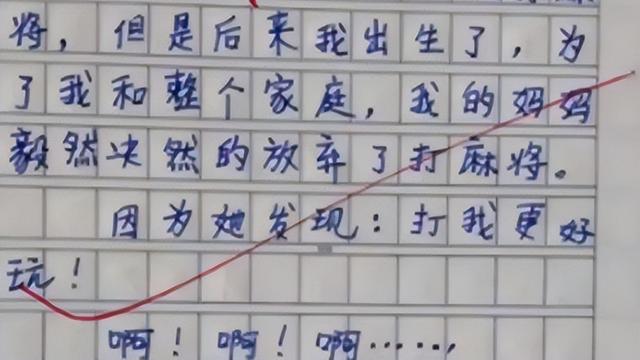 将，但是后来我出生了，为
了我和整个家庭，我的妈妈
毅然决然的放弃了打麻将。
因为她发现：打我更好
玩！
啊！啊！啊……，